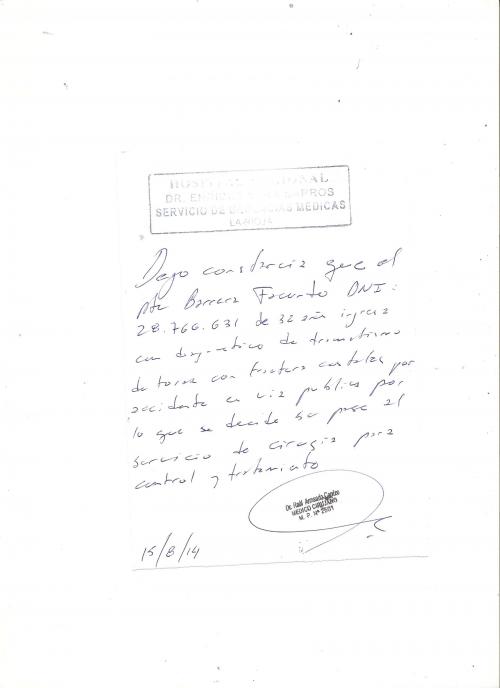 HOSPITAL REGIONAL
DR. ENRIQUE VERA BARROS
SERVICIO DE URGENCIAS MEDICAS
LA RIOJA
Dejo constancia que el
pte Barrera Facundo DNI:
28.766.631 de 32 años ingresa
con diagnostico de traumatismo
de torax con fractura costales por
accidente en via publica por
lo que se decide su pase al
servicio de cirugia para
control y tratamiento
Dr. Raúl Armando
MEDICO CIRUJANO
M. P. Nº
15/8/14